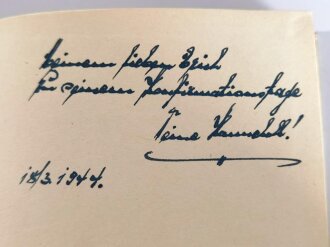 Meinem lieben Erich
zu seinem Konfirmationstage
Deine
18/3. 1944.